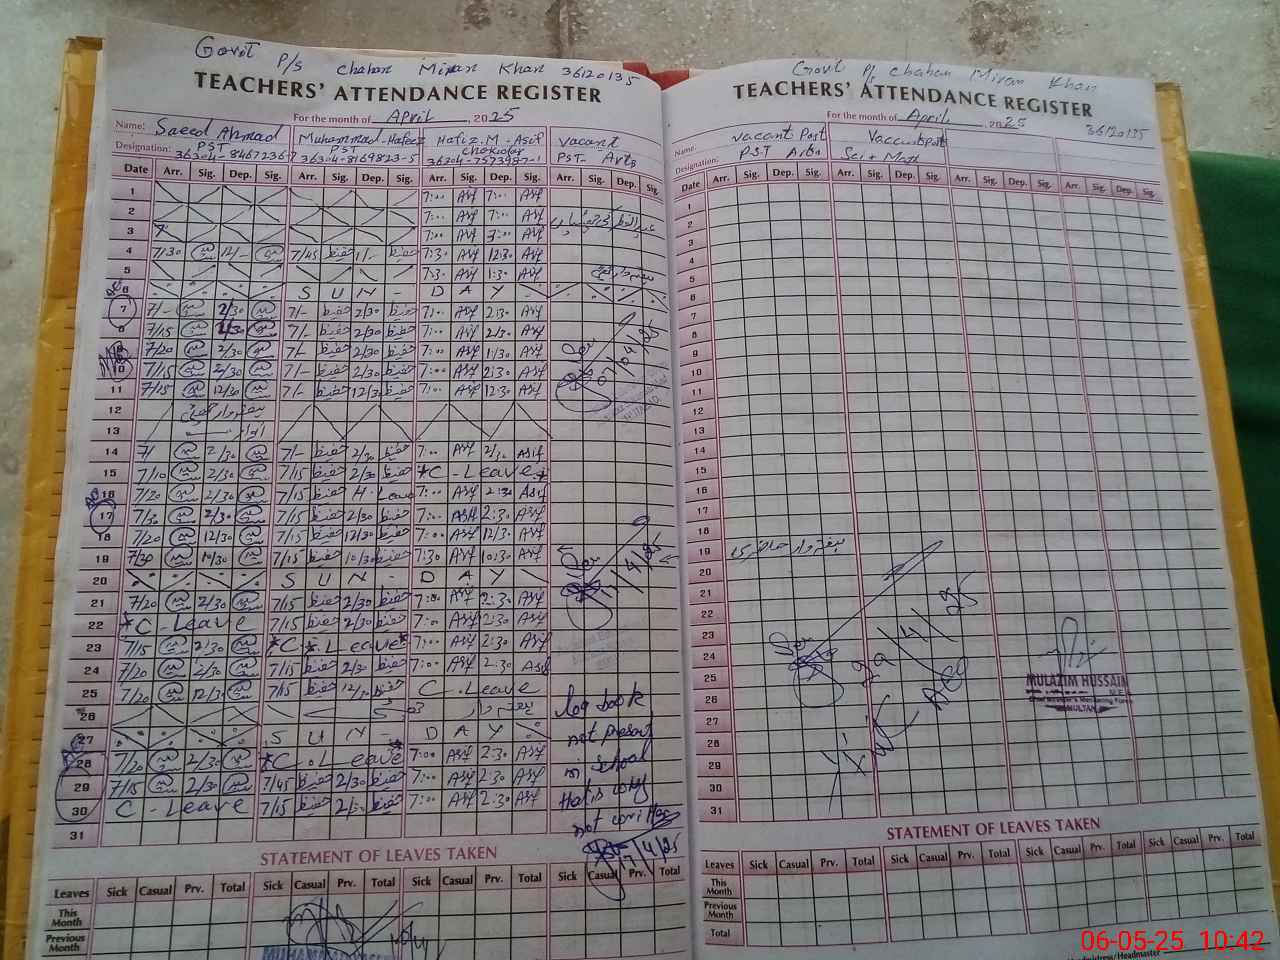 Govt P/S Chahan Miran Khan 36120135
TEACHERS' ATTENDANCE REGISTER
For the month of April, 2025
Name: Saeed Ahmad Muhammad Hafeez Hafiz M. Asif Vacant
Designation: PST PST Chokidar PST- Arts
36304-8169823-5
Date Arr. Sig. Dep. Sig. Arr. Sig. Dep. Sig. Arr. Sig. Dep. Sig. Arr. Sig. Dep. Sig.
1 7:00 Asif 7:00 Asif
2 7:00 Asif 7:00 Asif
3 7:00 Asif 7:00 Asif
4 7/30 12/- 7/45 حفیظ 1/- حفیظ 7:30 Asif 12:30 Asif
5 7:30 Asif 1:30 Asif
6 S U N - D A Y
7 7/- 2/30 7/- حفیظ 2/30 حفیظ 7:00 Asif 2:30 Asif
8 7/15 2/30 7/- حفیظ 2/30 حفیظ 7:00 Asif 2:30 Asif
9 7/20 2/30 7/- حفیظ 2/30 حفیظ 7:00 Asif 1:30 Asif
10 7/15 2/30 7/- حفیظ 2/30 حفیظ 7:00 Asif 2:30 Asif
11 7/15 12/30 7/- حفیظ 12/30 حفیظ 7:00 Asif 12:30 Asif
12
13
14 7/ 2/30 7/- حفیظ 2/30 حفیظ 7:00 Asif 2/30 Asif
15 7/10 2/30 7/15 حفیظ 2/30 حفیظ *C - Leave*
16 7/20 2/30 7/15 حفیظ H. Leave 7:00 Asif 2:30 Asif
17 7/20 2/30 7/15 حفیظ 2/30 حفیظ 7:00 Asif 2:30 Asif
18 7/20 12/30 7/15 حفیظ 12/30 حفیظ 7:00 Asif 12/30 Asif
19 7/20 10/30 7/15 حفیظ 10/30 حفیظ 7:30 Asif 10:30 Asif
20 S U N - D A Y
21 7/20 2/30 7/15 حفیظ 2/30 حفیظ 7:00 Asif 2:30 Asif
22 *C - Leave 7/15 حفیظ 2/30 حفیظ 7:00 Asif 2:30 Asif
23 7/15 2/30 *C. Leave* 7:00 Asif 2:30 Asif
24 7/20 2/30 7/15 حفیظ 2/30 حفیظ 7:00 Asif 2:30 Asif
25 7/20 12/30 7/15 حفیظ 12/30 حفیظ C. Leave
26
27 S U N - D A Y
28 7/20 2/30 *C. Leave 7:00 Asif 2:30 Asif
29 7/20 2/30 7/45 حفیظ 2/30 حفیظ 7:00 Asif 2:30 Asif
30 C - Leave 7/15 حفیظ 2/30 حفیظ 7:00 Asif 2:30 Asif
31
07/04/25
17/4/25
log book
not present
in school
that is why
not written
17/4/25
STATEMENT OF LEAVES TAKEN
Leaves Sick Casual Prv. Total Sick Casual Prv. Total Sick Casual Prv. Total Sick Casual Prv. Total
This Month
Previous Month
Govt P/S Chahan Miran Khan
TEACHERS' ATTENDANCE REGISTER
For the month of April, 2025 36120135
Name: Vacant Post Vacant Post
Designation: PST Arts Sci + Math
Date Arr. Sig. Dep. Sig. Arr. Sig. Dep. Sig. Arr. Sig. Dep. Sig. Arr. Sig. Dep. Sig.
1
2
3
4
5
6
7
8
9
10
11
12
13
14
15
16
17
18
19
20
21
22
23
24
25
26
27
28
29
30
31
29/4/25
MULAZIM HUSSAIN
MULTAN
STATEMENT OF LEAVES TAKEN
Leaves Sick Casual Prv. Total Sick Casual Prv. Total Sick Casual Prv. Total Sick Casual Prv. Total
This Month
Previous Month
Total
06-05-25 10:42